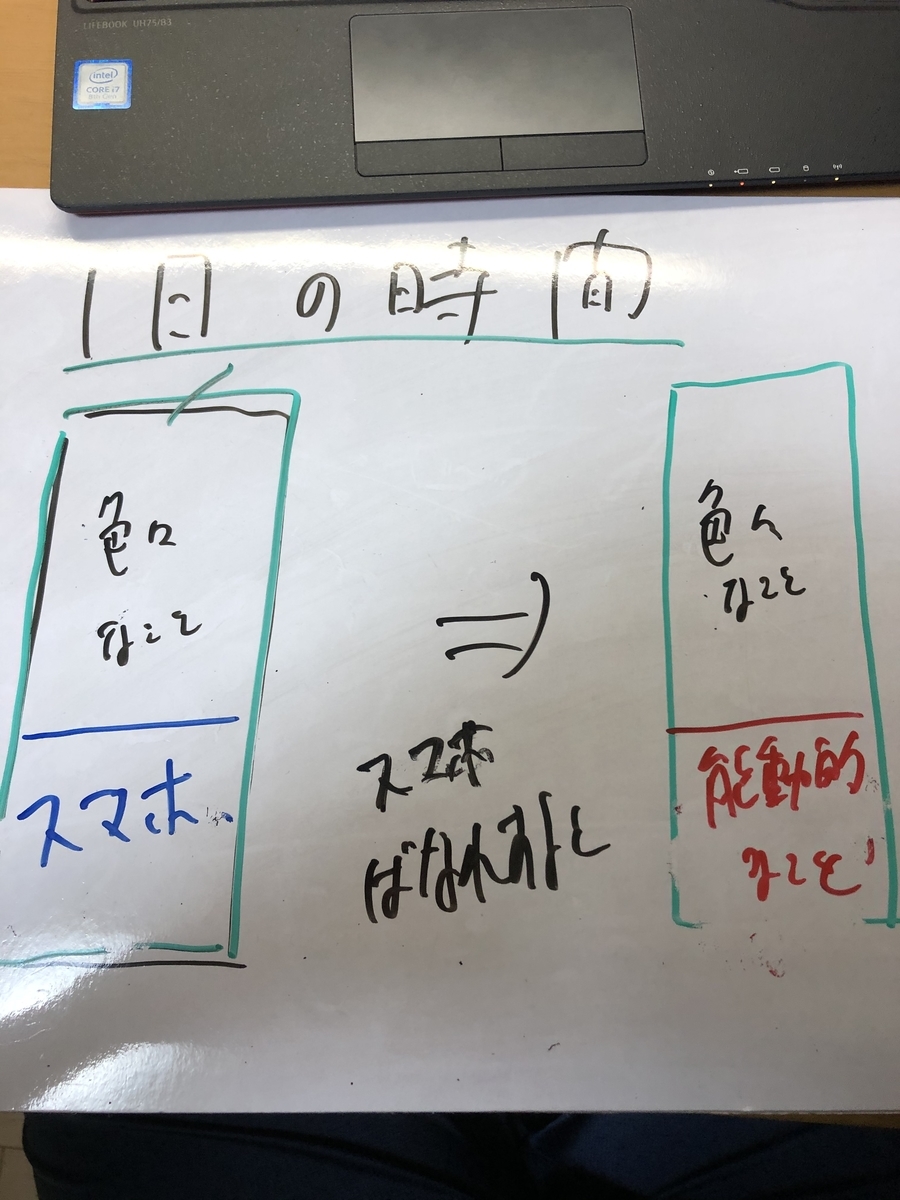 LIFEBOOK UH75/B3
intel
CORE i7
8th Gen
1日の時間
色々
なこと
スマホ
⇒
スマホ
ばなれすると
色々
なこと
能動的
なこと